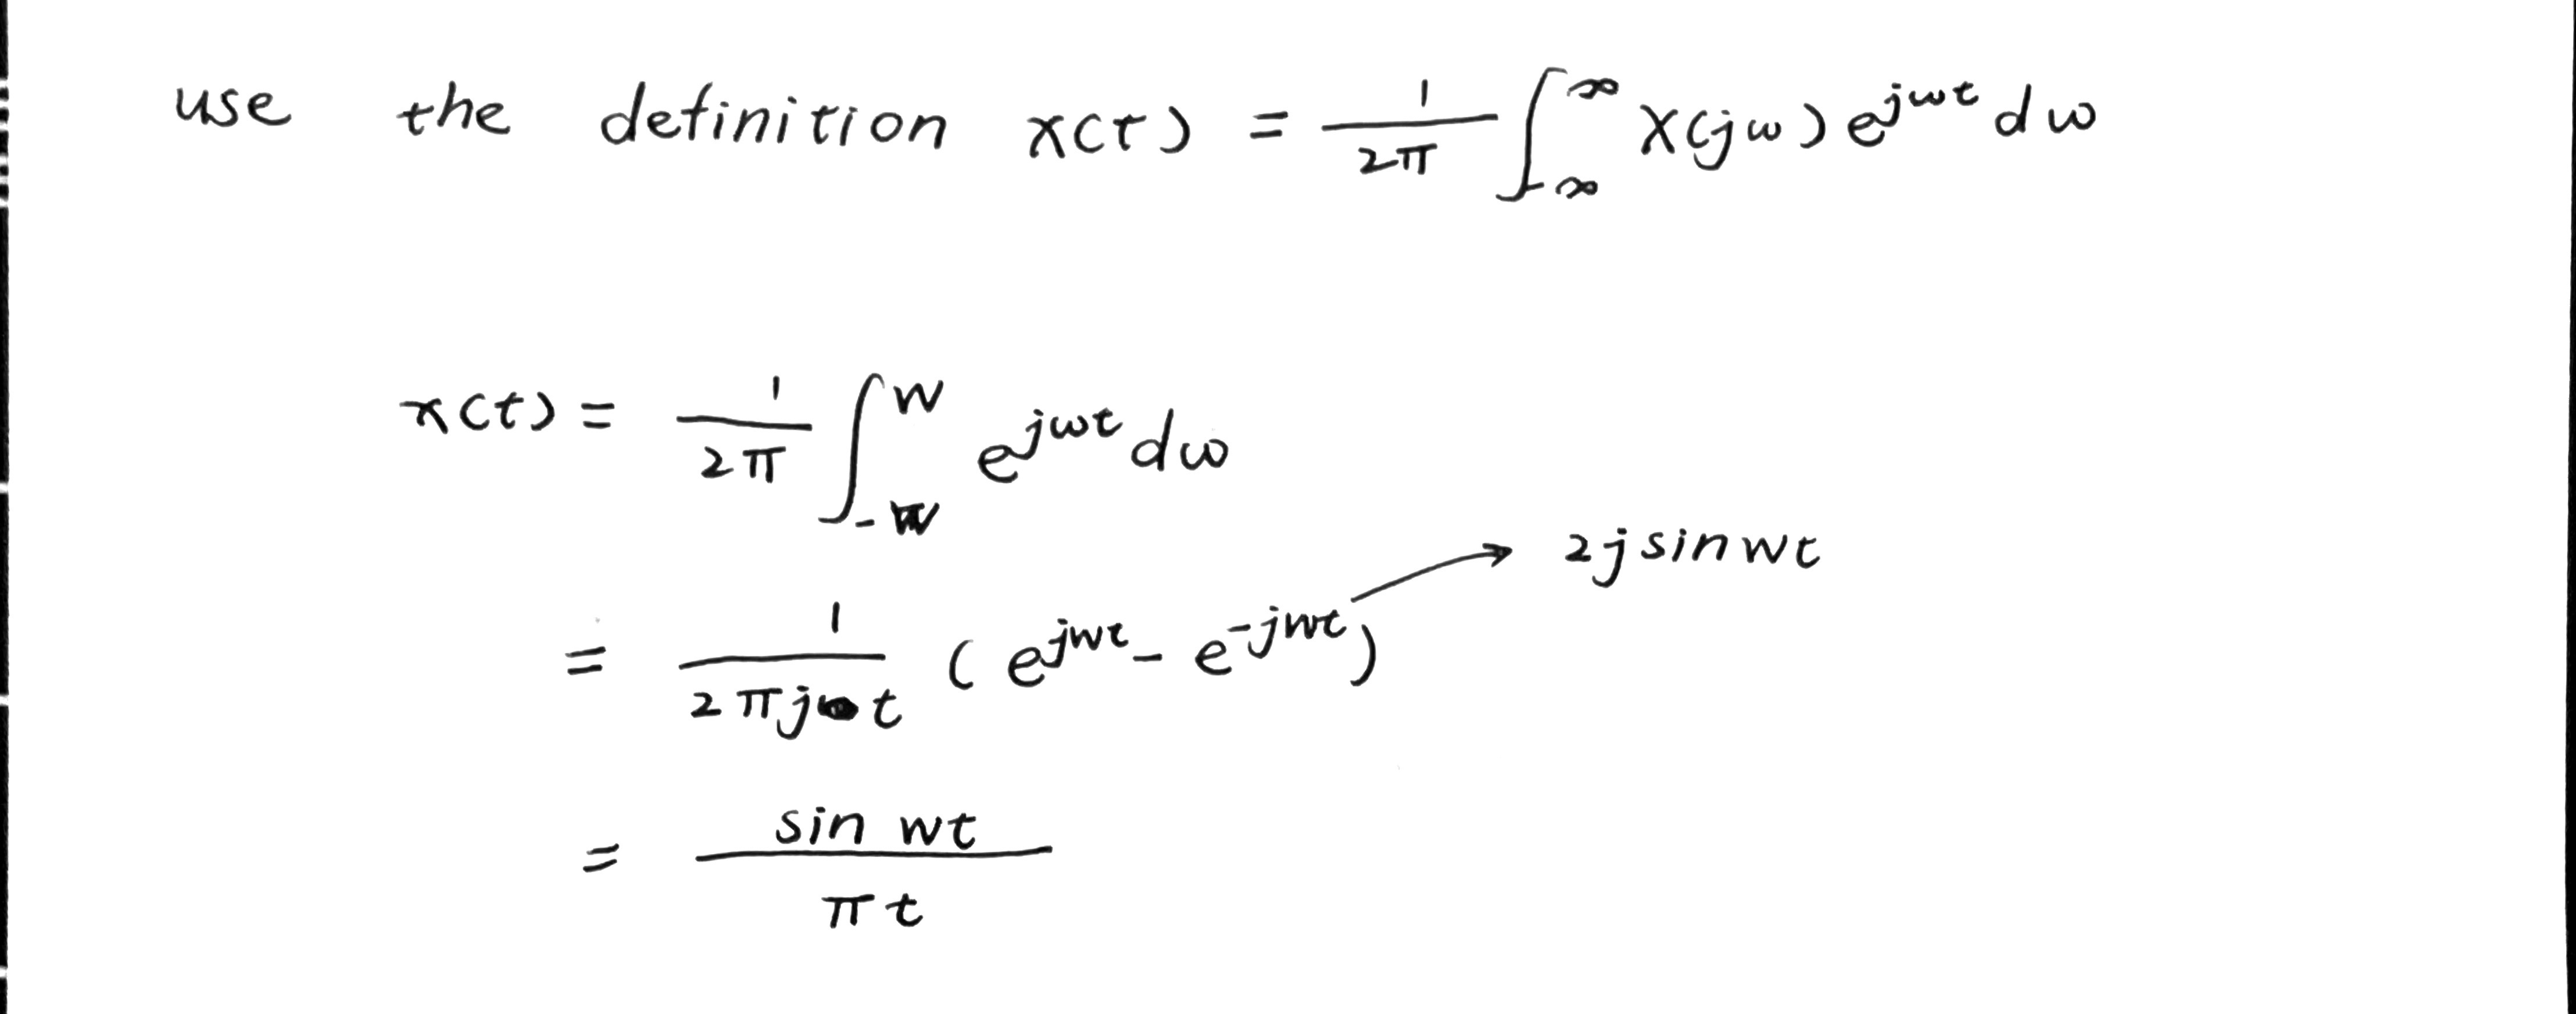 use the definition x(t) = \frac{1}{2\pi} \int_{-\infty}^{\infty} X(jω) e^{jωt} dω
x(t) = \frac{1}{2\pi} \int_{-W}^{W} e^{jωt} dω
= \frac{1}{2\pi j t} (e^{jWt} - e^{-jWt}) → 2j sin Wt
= \frac{sin Wt}{\pi t}